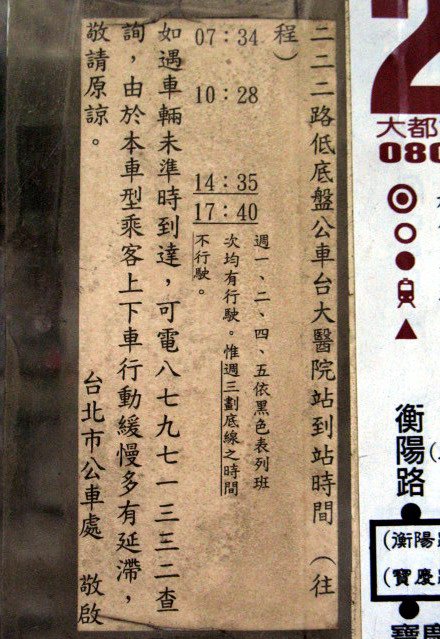 二二二路低底盤公車台大醫院站到站時間（往
程）
07：34
10：28
14：35
17：40
週一、二、四、五依黑色表列班
次均有行駛。惟週三劃底線之時間
不行駛。
如遇車輛未準時到達，可電八七九七一三三二查
詢，由於本車型乘客上下車行動緩慢多有延滯，
敬請原諒。
台北市公車處 敬啟
2
大都
080
衡陽路
(衡陽
(寶慶